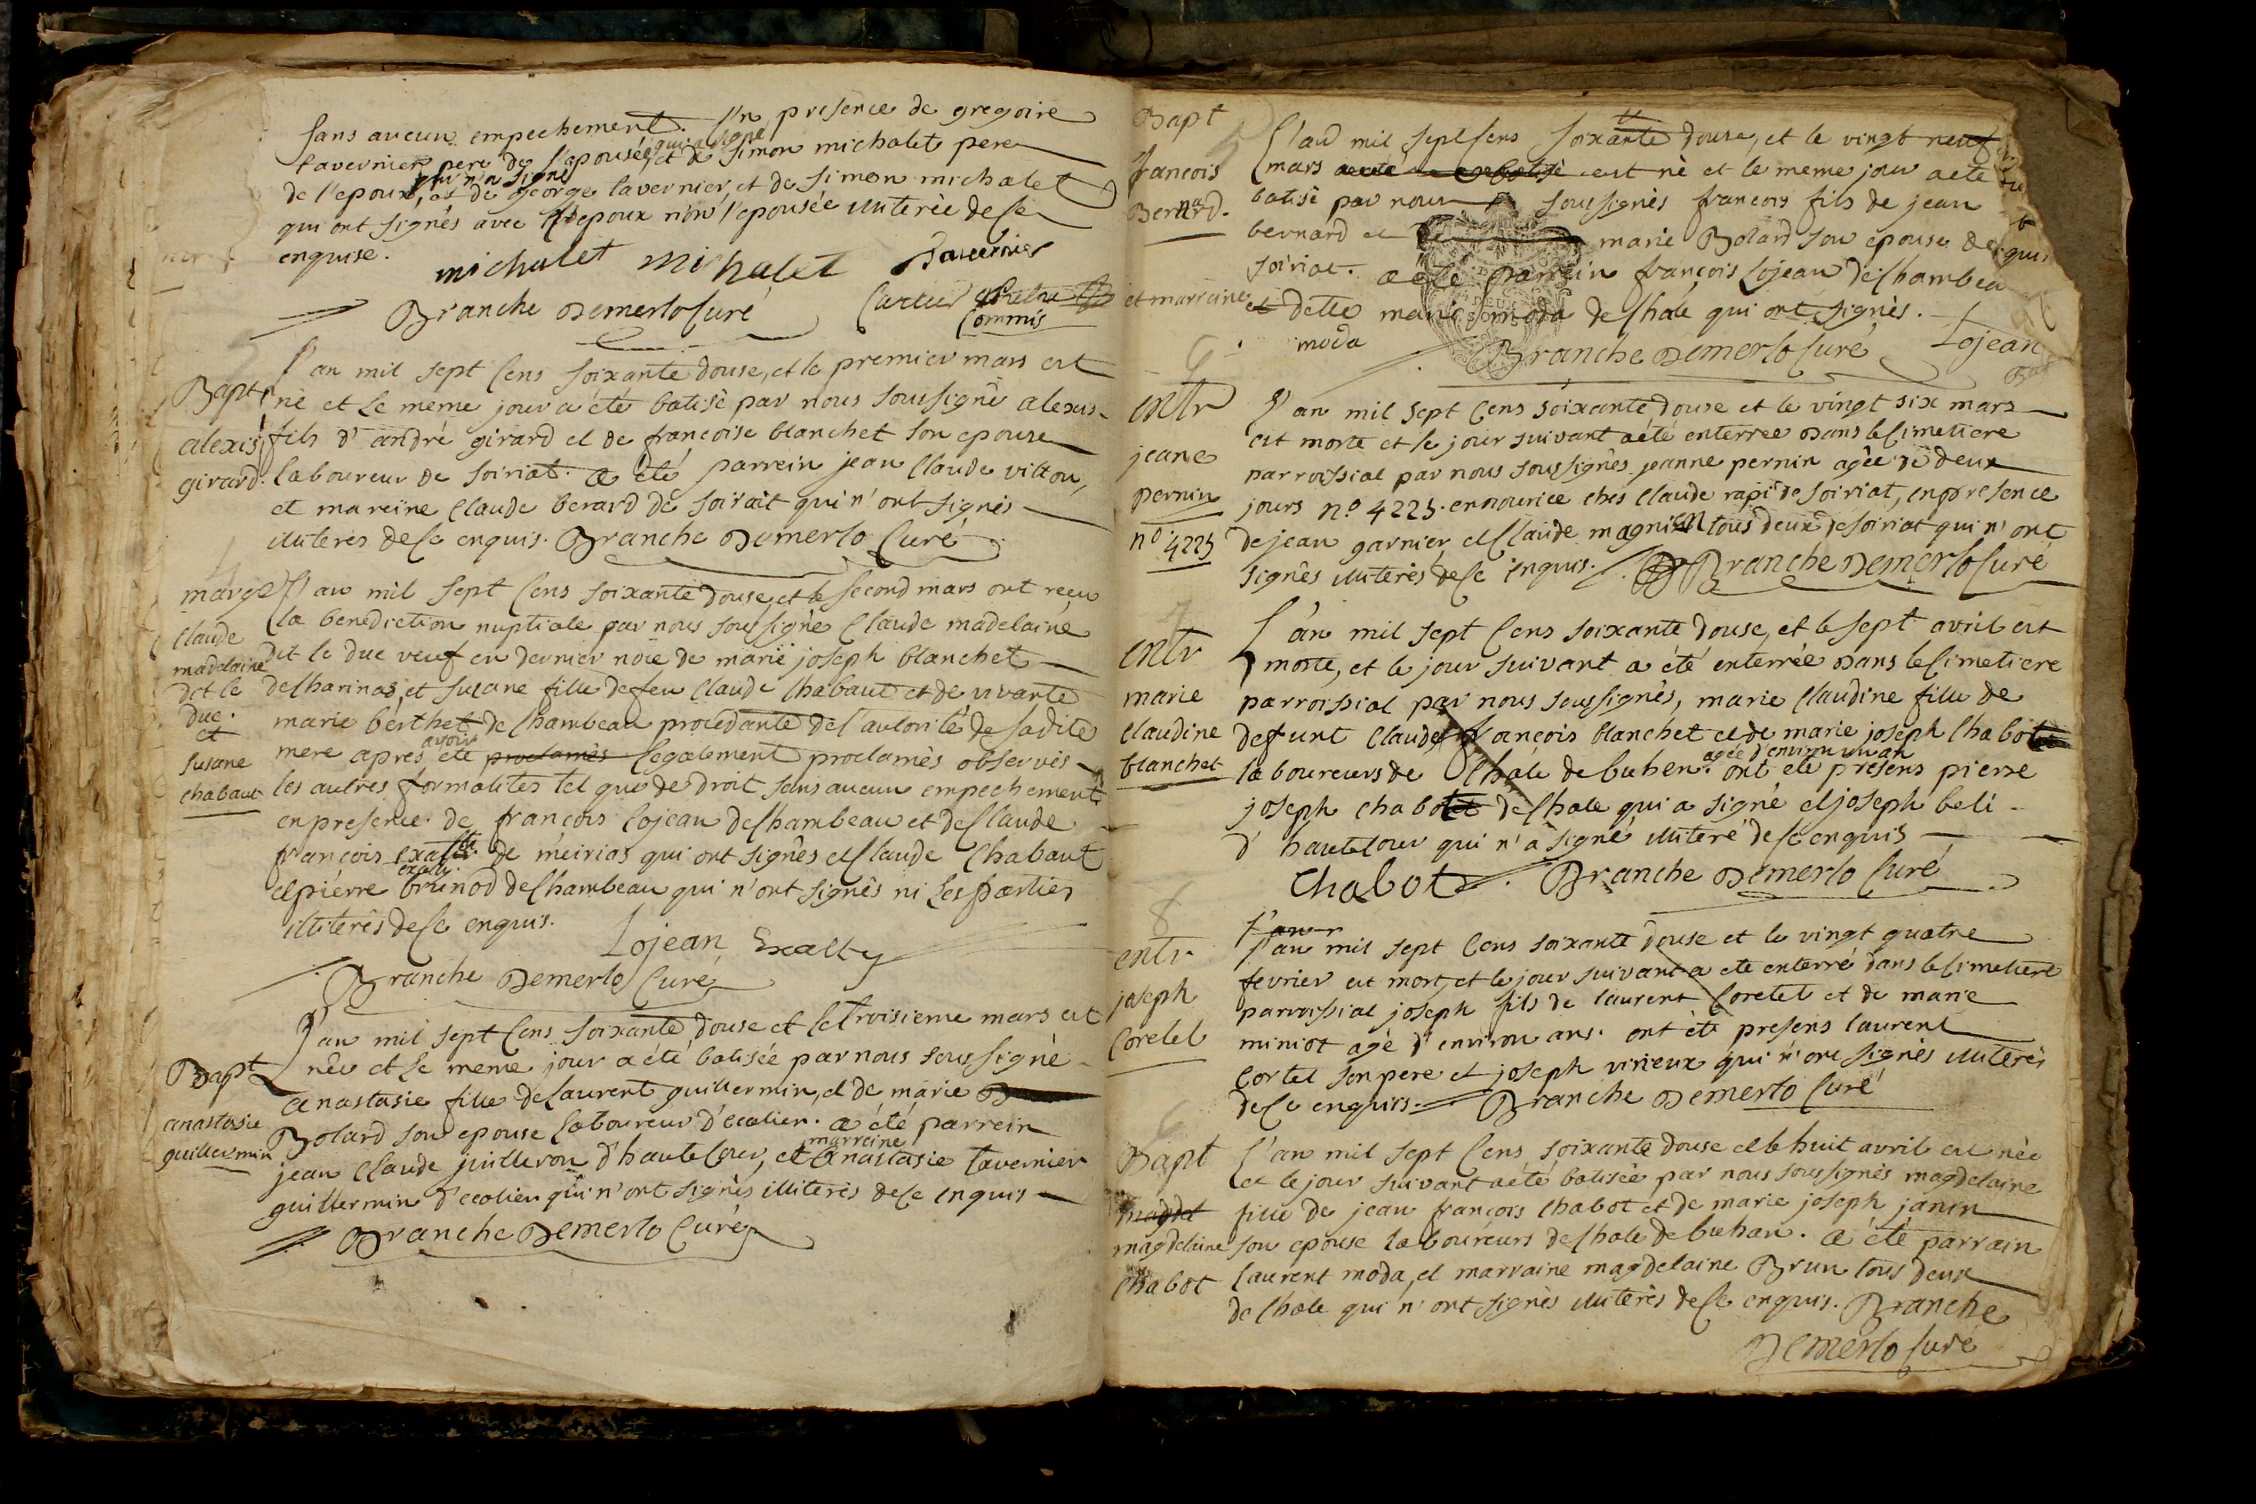 sans aucun empechement. En presence de gregoire
tavernier pere de l'epousée, qui a signé et de Simon michalet pere
de l'epoux, qui n'a signé et de george tavernier, et de simon michalet
qui ont signés avec l'epoux non l'epousée illiterée de ce
enquise.
michalet michalet Tavernier
Branche Demerlo Curé
Commis
L'an mil sept cens soixante douse, et le premier mars est
né et le meme jour a été batisé par nous soussigné alexis
fils d'andré girard et de françoise blanchet son epouse
laboureur de soiriat. a été parrein jean claude villon,
et mareine claude berard de soiriat qui n'ont signés
illiterés de ce enquis. Branche Demerlo Curé
Bapt
alexis
girard.
L'an mil sept cens soixante douse, et le second mars ont reçu
la benediction nuptiale par nous soussigné claude madelaine
dit le duc veuf en dernier noïe de marie joseph blanchet
de charinas, et susane fille de feu claude chabaut et de vivante
marie berthet de chambeau procedante de l'autorité de sadite
mere apres avoir été proclamés legalement proclamés observés
les autres formalites tel que de droit sans aucun empechement
en presence de françois lojean de chambeau et de claude
françois exalty de meirias qui ont signés et claude chabaut
et pierre brunod de chambeau qui n'ont signés ni les parties
illiterés de ce enquis. Lojean Exalty
Branche Demerlo Curé
marge
claude
madelaine
dit le
duc.
et
susane
chabaut
L'an mil sept cens soixante douse et le troisieme mars est
née et le meme jour a été batisée par nous soussigné
anastasie fille de laurent guillermin, et de marie
Bolard son epouse laboureur d'ecolier. a été parrein
jean claude juilleron d'hautecour, et marreine anastasie tavernier
guillermin d'ecolier qui n'ont signés illiterés de ce enquis
Branche Demerlo Curé
Bapt
anastasie
guillermin
Bapt
françois
Bernard.
L'an mil sept cens soixante douse, et le vingt neuf
mars est né et le meme jour a été
batisé par nous soussignés francois fils de jean
bernard et marie Bolard son epouse de
soiriat. a été parrein françois lojean de chambeau
et marreine et dette marie moda de chale qui ont signés.
moda Branche Demerlo Curé Lojean
entr
jeane
pernin
n° 4223
L'an mil sept cens soixante douse et le vingt six mars
est morte et le jour suivant a été enterrée dans le cimetiere
parroissial par nous soussignés jeanne pernin agée de deux
jours n° 4223. en nourice ches claude rapi de soiriat, en presence
de jean garnier et claude magnien tous deux de soiriat qui n'ont
signés illiterés de ce enquis. Branche Demerlo Curé
entr
marie
claudine
blanchet
L'an mil sept cens soixante douse, et le sept avril est
morte, et le jour suivant a été enterrée dans le cimetiere
parroissial par nous soussignés, marie claudine fille de
defunt claude françois blanchet et de marie joseph chabot
laboureurs de chale de buhen. agée d'environ un an ont été presens pierre
joseph chabot de chale qui a signé et joseph beli
d'hautecour qui n'a signé illiteré de ce enquis
Chabot Branche Demerlo Curé
entr.
joseph
coretet
L'an mil sept cens soixante douse et le vingt quatre
fevrier est mort, et le jour suivant a été enterré dans le cimetiere
parroissial joseph fils de laurent coretet et de marie
miniot agé d'environ ans. ont été presens laurent
cortet son pere et joseph virieux qui n'ont signés illiterés
de ce enquis. Branche Demerlo Curé
Bapt
magdel
magdelaine
chabot
L'an mil sept cens soixante douse et le huit avril est née
et le jour suivant a été batisée par nous soussignés magdelaine
fille de jean françois chabot et de marie joseph janin
son epouse laboureurs de chale de buhan. a été parrain
laurent moda, et marraine magdelaine Brun tous deux
de chale qui n'ont signés illiterés de ce enquis. Branche
Demerlo Curé